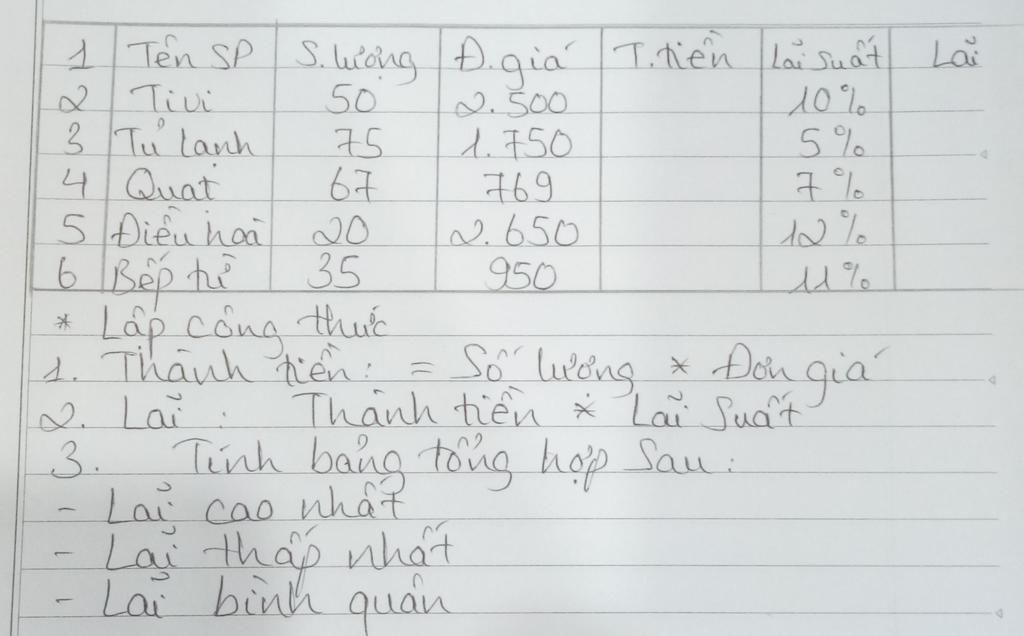 1 Tên SP S.lượng Đ.giá T.tiền Lãi suất Lãi
2 Tivi 50 2.500 10%
3 Tủ lạnh 75 1.750 5%
4 Quạt 67 769 7%
5 Điều hoà 20 2.650 12%
6 Bếp từ 35 950 11%
* Lập công thức
1. Thành tiền: = Số lượng * Đơn giá
2. Lãi: Thành tiền * Lãi suất
3. Tính bảng tổng hợp sau:
- Lãi cao nhất
- Lãi thấp nhất
- Lãi bình quân